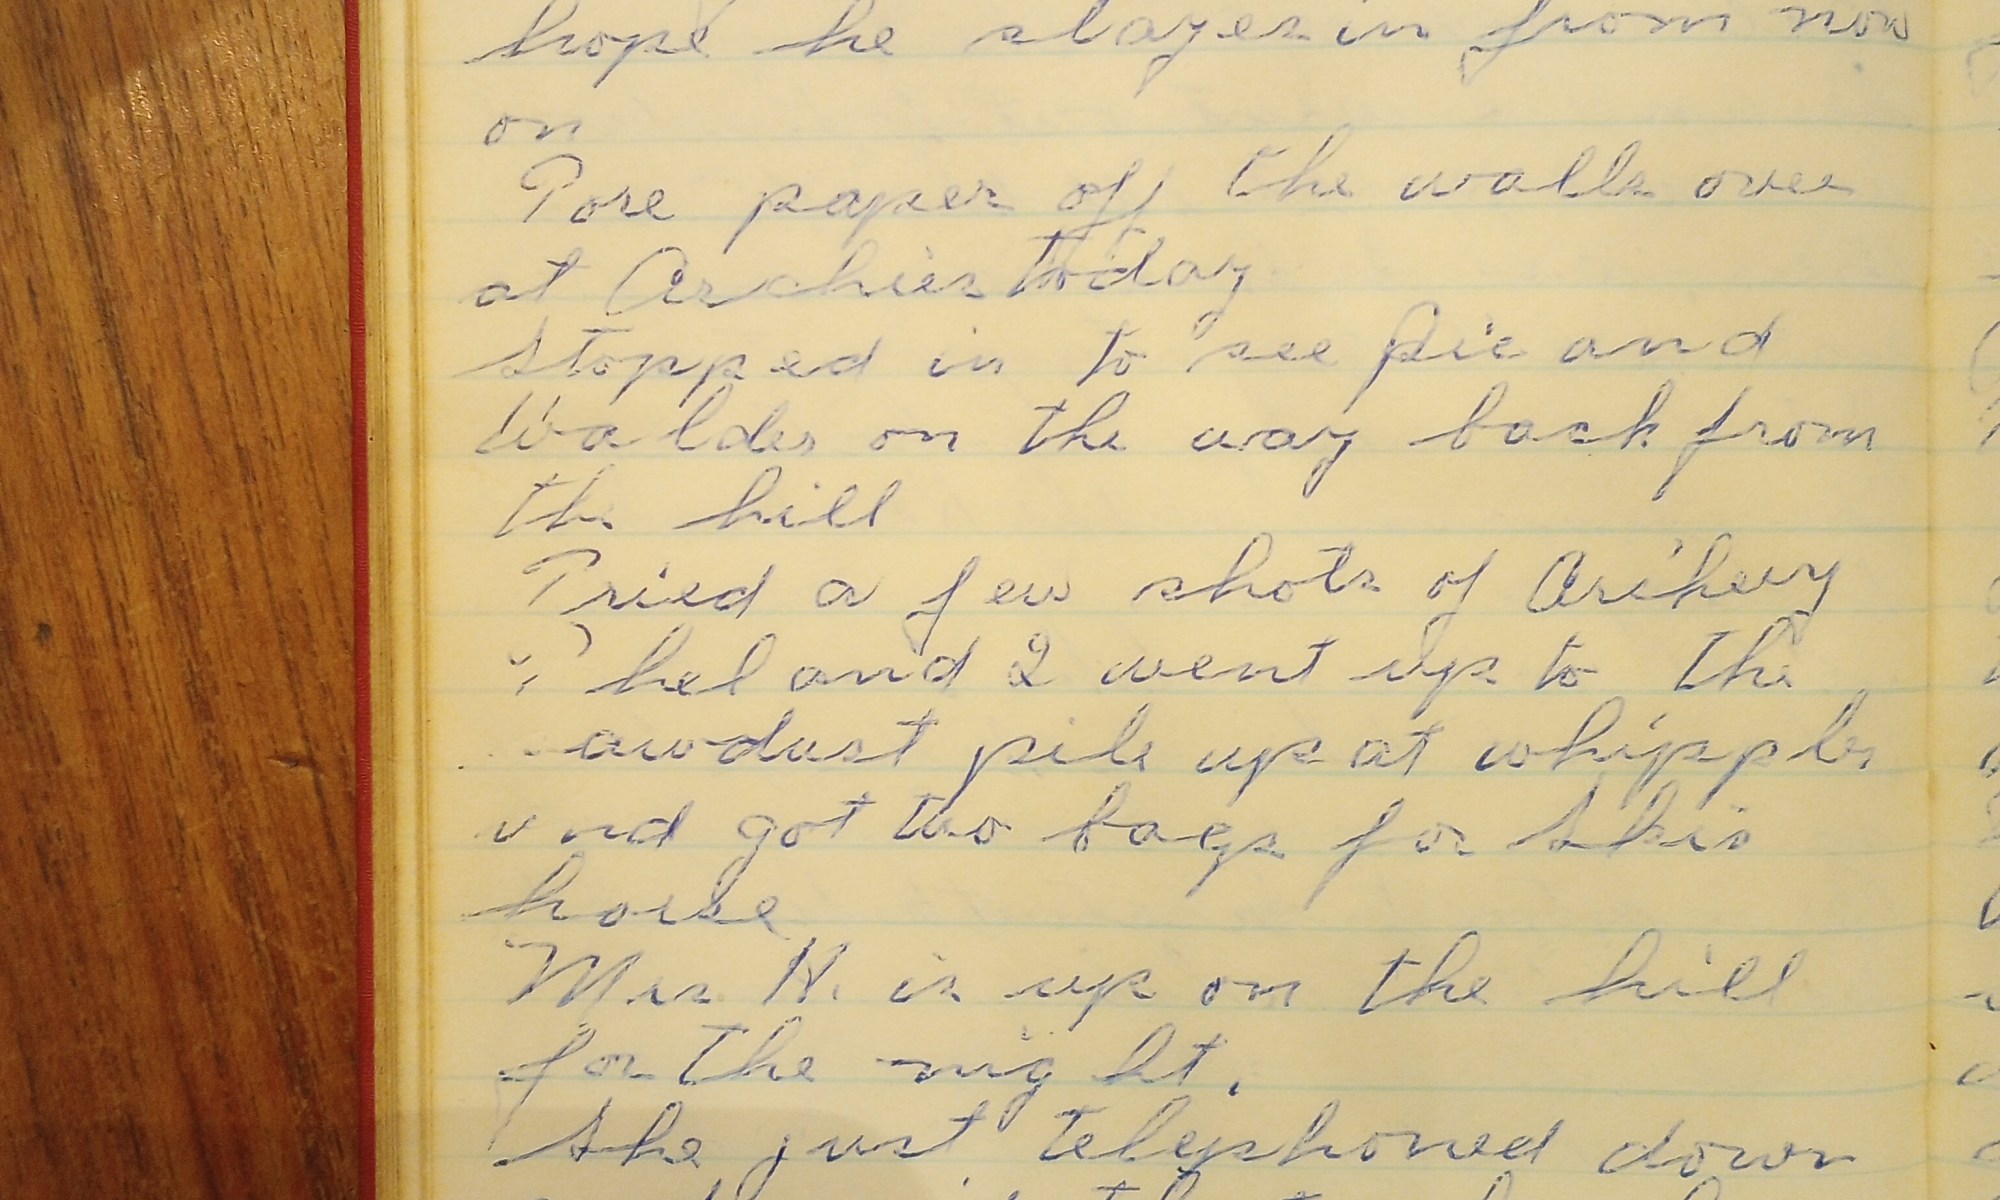 hope he stayes in from now
on
Tore paper off the walls over
at Archies today
stopped in to see Pie and
Waldes on the way back from
the hill
Tried a few shots of Archery
hel and I went up to the
awdust pile up at whipples
and got two bags for Skis
house
Mrs H. is up on the hill
for the night.
She just telephoned down